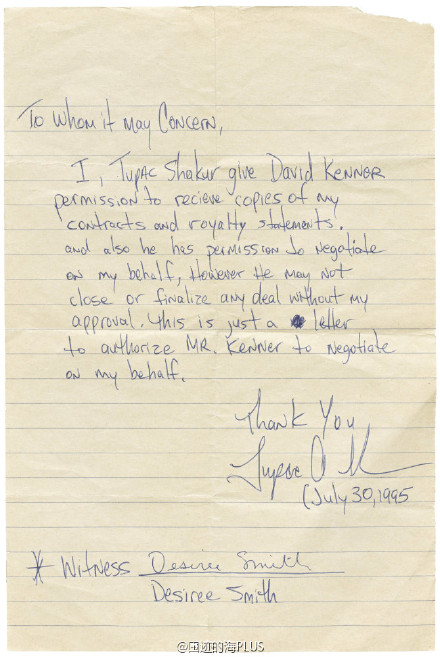 To Whom it may Concern,
I, Tupac Shakur give David Kenner
permission to recieve copies of my
contracts and royalty statements.
and also he has permission to negotiate
on my behalf, However He may not
close or finalize any deal without my
approval. This is just a letter
to authorize MR. Kenner to negotiate
on my behalf.
Thank You
July 30, 1995
* Witness Desiree Smith
Desiree Smith
@国逝的海PLUS